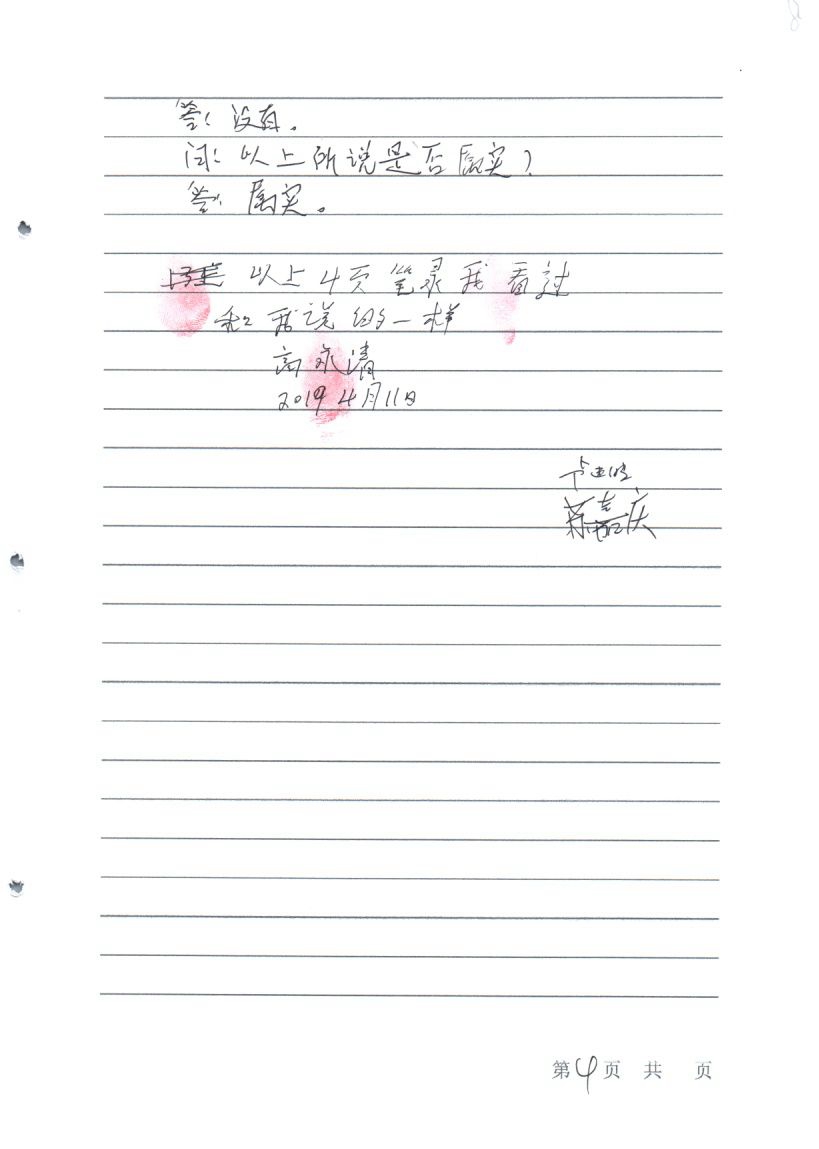 答：没有。
问：以上所说是否属实？
答：属实。
以上4页笔录我看过
和我说的一样
高永清
2019 4月11日
嘉庆
第4页 共 页